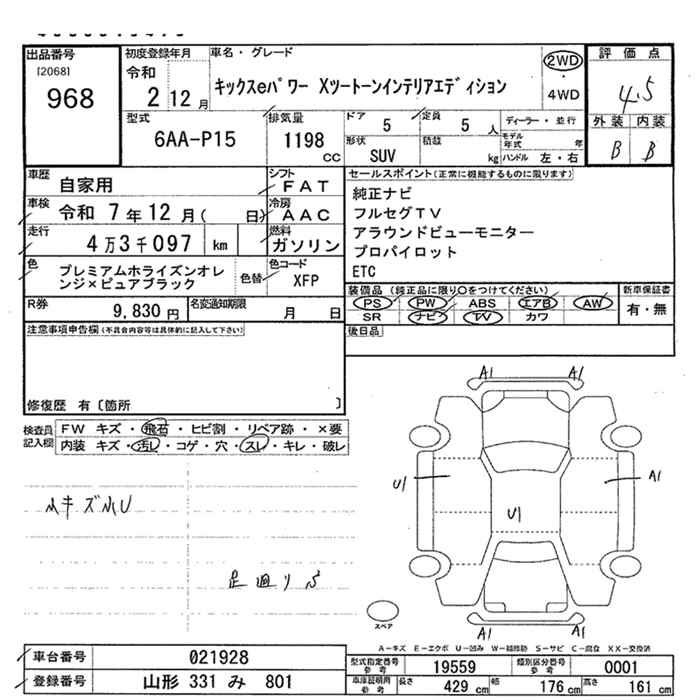 出品番号
[2068]
968
初度登録年月
令和
2 12 月
車名・グレード
キックスeパワー Xツートーンインテリアエディション
2WD
・
4WD
評価点
4.5
外装 内装
B B
型式
6AA-P15
排気量
1198
CC
ドア
5
形状
SUV
定員
5 人
積載
kg
ディーラー・並行
モデル年式 年
ハンドル 左・右
車歴
自家用
シフト
FAT
車検
令和 7年12月( 日)
冷房
AAC
走行
4万3千097 km
燃料
ガソリン
色
プレミアムホライズンオレンジ×ピュアブラック
色替
色コード
XFP
R券
9,830 円
名変通知期限
月 日
セールスポイント(正常に機能するものに限ります)
純正ナビ
フルセグTV
アラウンドビューモニター
プロパイロット
ETC
装備品 (純正品に限り○をつけてください)
PS PW ABS エアB AW
SR ナビ TV カワ
新車保証書
有・無
後日品
注意事項申告欄(不具合内容等は具体的に記入して下さい)
修復歴 有〔箇所 〕
検査員記入欄
FW キズ・飛石・ヒビ割・リペア跡・×要
内装 キズ・汚レ・コゲ・穴・スレ・キレ・破レ
小キズ小U
足廻りS
A1 A1
U1
A1
U1
A1 A1
スペア
A-キズ E-エクボ U-凹み W-補修跡 S-サビ C-腐食 XX-交換済
車台番号
021928
登録番号
山形 331 み 801
型式指定番号
参考
19559
類別区分番号
参考
0001
車庫証明用
参考
長さ
429 cm
幅
176 cm
高さ
161 cm